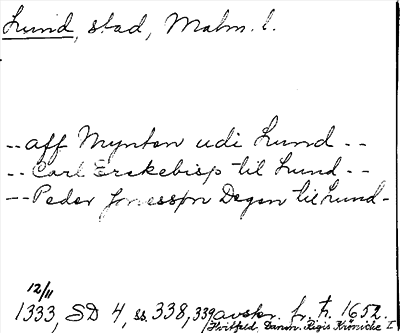 Lund, stad, Malm. l.
-- aff Mynten udi Lund --
-- Carl Erckebisp til Lund --
-- Peder Jonesspn Degen til Lund -
12/11
1333, SD 4, ss. 338, 339 avskr. fr. tr. 1652.
/Hvitfeld, Danm. Rigis Krönicke I